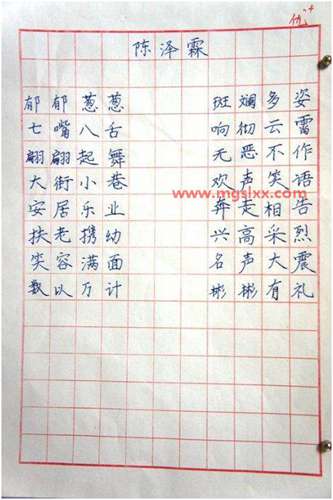 优+
陈泽霖
郁郁葱葱 斑斓多姿
七嘴八舌 响彻云雷
翩翩起舞 无恶不作
大街小巷 欢声笑语
www.mgslxx.com
安居乐业 奔走相告
扶老携幼 兴高采烈
笑容满面 名声大震
数以万计 彬彬有礼